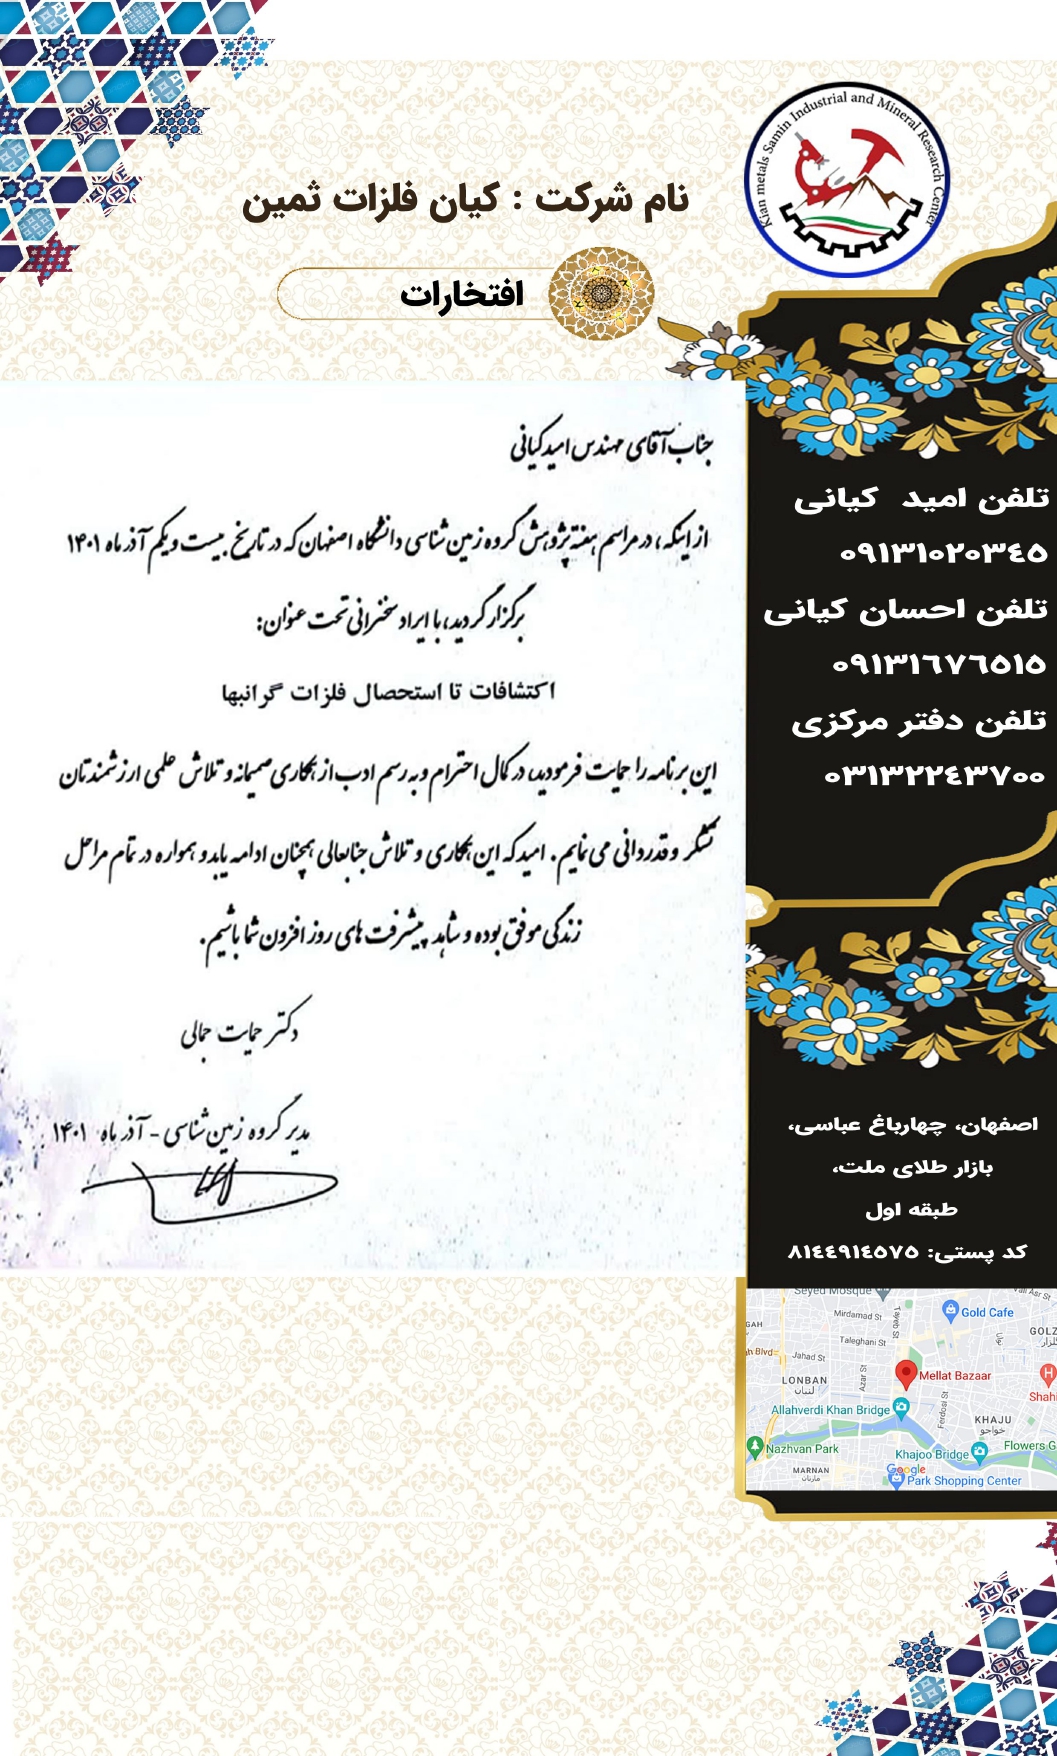 Kian metals Samin Industrial and Mineral Research Center
نام شرکت : کیان فلزات ثمین
افتخارات
جناب آقای مهندس امید کیانی
از اینکه، در مراسم هفته پژوهش گروه زمین شناسی دانشگاه اصفهان که در تاریخ بیست و یکم آذر ماه ۱۴۰۱
برگزار گردید، با ایراد سخنرانی تحت عنوان:
اکتشافات تا استحصال فلزات گرانبها
این برنامه را حمایت فرمودید، در کمال احترام و به رسم ادب از همکاری صمیمانه و تلاش علمی ارزشمندتان
تشکر و قدردانی می نمایم. امید که این همکاری و تلاش جنابعالی همچنان ادامه یابد و همواره در تمام مراحل
زندگی موفق بوده و شاهد پیشرفت های روز افزون شما باشیم.
دکتر حمایت جمالی
مدیر گروه زمین شناسی - آذر ماه ۱۴۰۱
تلفن امید کیانی
۰۹۱۳۱۰۲۰۳٤٥
تلفن احسان کیانی
۰۹۱۳۱٦۷٦٥۱٥
تلفن دفتر مرکزی
۰۳۱۳۲۲٤۳۷۰۰
اصفهان، چهارباغ عباسی،
بازار طلای ملت،
طبقه اول
کد پستی: ۸۱٤٤۹۱٤٥۷٥
Seyed Mosque
Mirdamad St
Tayeb St
Gold Cafe
Vali Asr St
GAH
Taleghani St
GOLZ
گلزار
ah Blvd
Jahad St
Azar St
Mellat Bazaar
LONBAN
لنبان
Shahi
Allahverdi Khan Bridge
Ferdosi St
KHAJU
خواجو
Nazhvan Park
Khajoo Bridge
Flowers G
MARNAN
مارنان
Google
Park Shopping Center